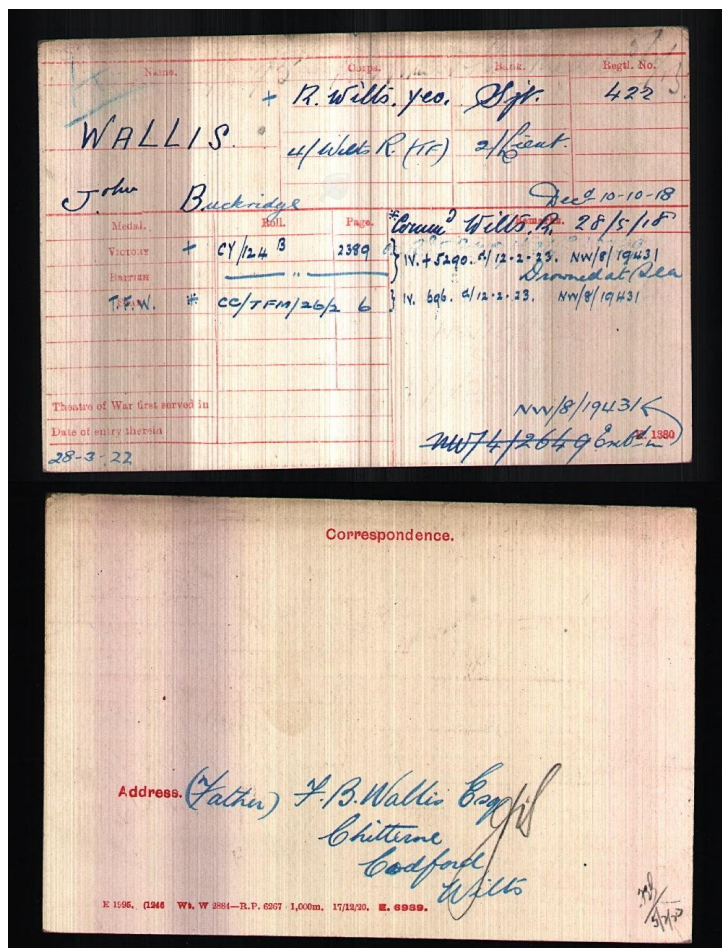 Name. Corps. Rank. Regtl. No.
+ R. Wilts. Yeo. Sjt. 422
WALLIS.
4/Wilts R. (TF) 2/Lieut.
John Buckridge
Decd 10-10-18
Medal. Roll. Page. Remarks.
*Commd Wilts. R. 28/5/18
Victory + CY/124 B 2389 } IV. + 5290. d/12-2-23. NW/8/19431
British — " — Drowned at Sea
T.F.W. * CC/TFM/26/2 6 } IV. 696. d/12-2-23. NW/8/19431
Theatre of War first served in
NW/8/19431
Date of entry therein
NW/4/2649 1380
28-3-22
Correspondence.
Address. (Father) F. B. Wallis Esq
Chitterne
Codford
Wilts
E 1995. (1246 Wt. W 2884—R.P. 6267 1,000m. 17/12/20. E. 6989.